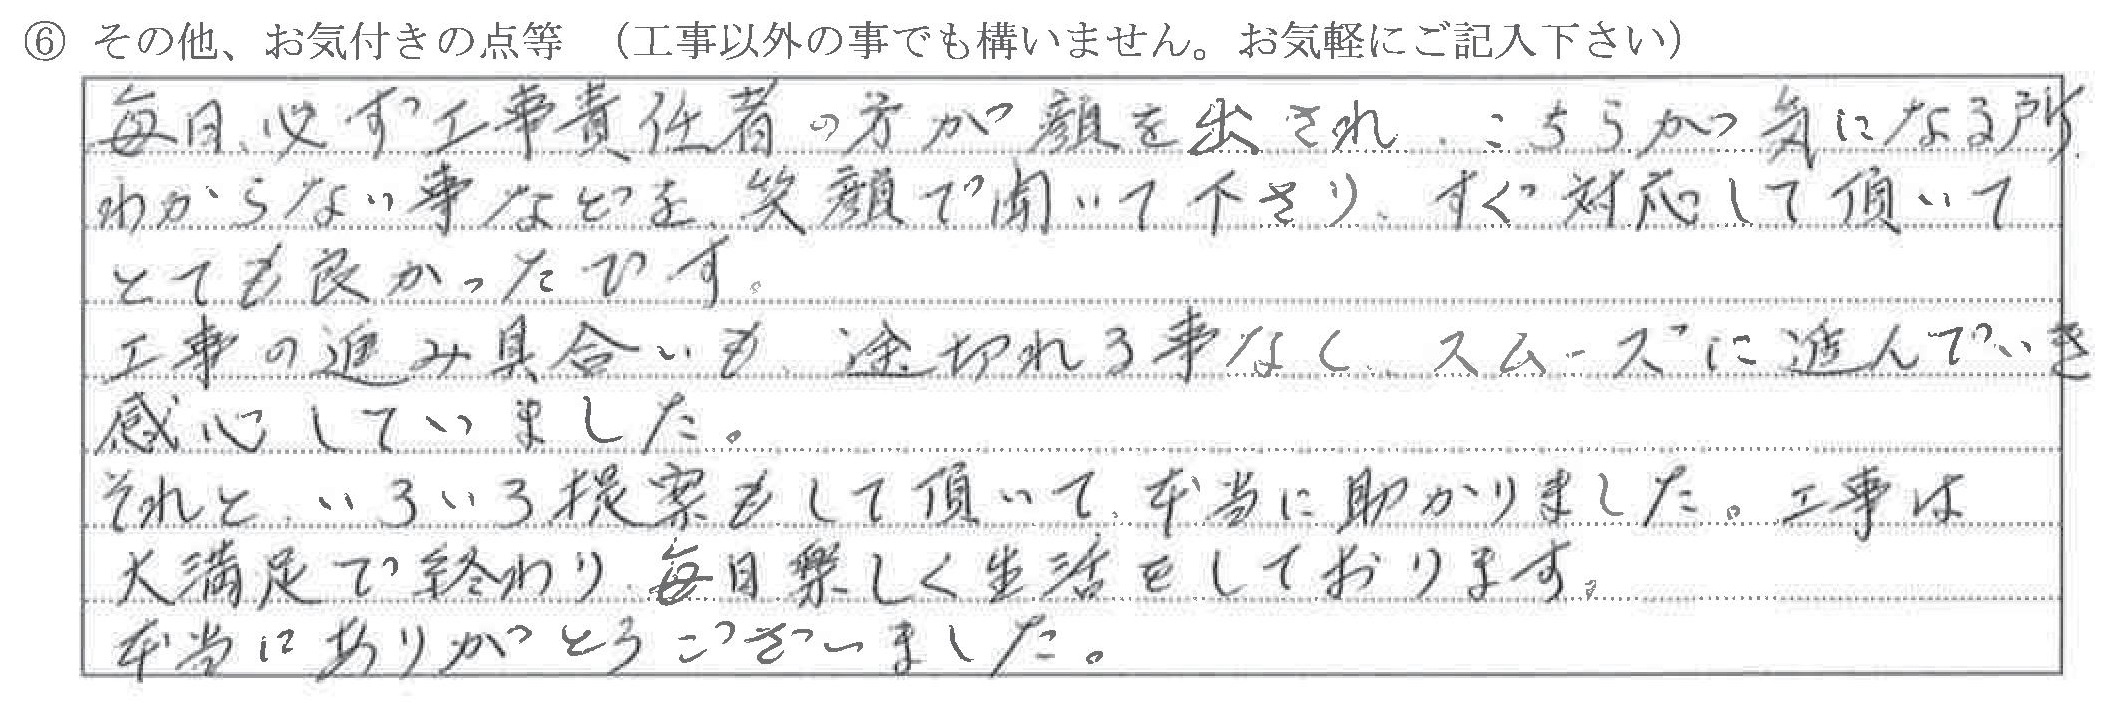 ⑥ その他、お気付きの点等　（工事以外の事でも構いません。お気軽にご記入下さい）
毎日、必ず工事責任者の方が顔を出され、こちらが気になる所、
わからない事などを、笑顔で聞いて下さり、すぐ対応して頂いて
とても良かったです。
工事の進み具合いも、途切れる事なく、スムーズに進んでいき
感心していました。
それと、いろいろ提案もして頂いて、本当に助かりました。工事は
大満足で終わり、毎日楽しく生活をしております。
本当にありがとうございました。